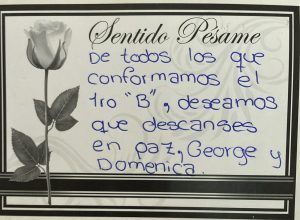 Sentido Pésame
De todos los que
conformamos el
1ro "B", deseamos
que descanses
en paz, George y
Domenica.